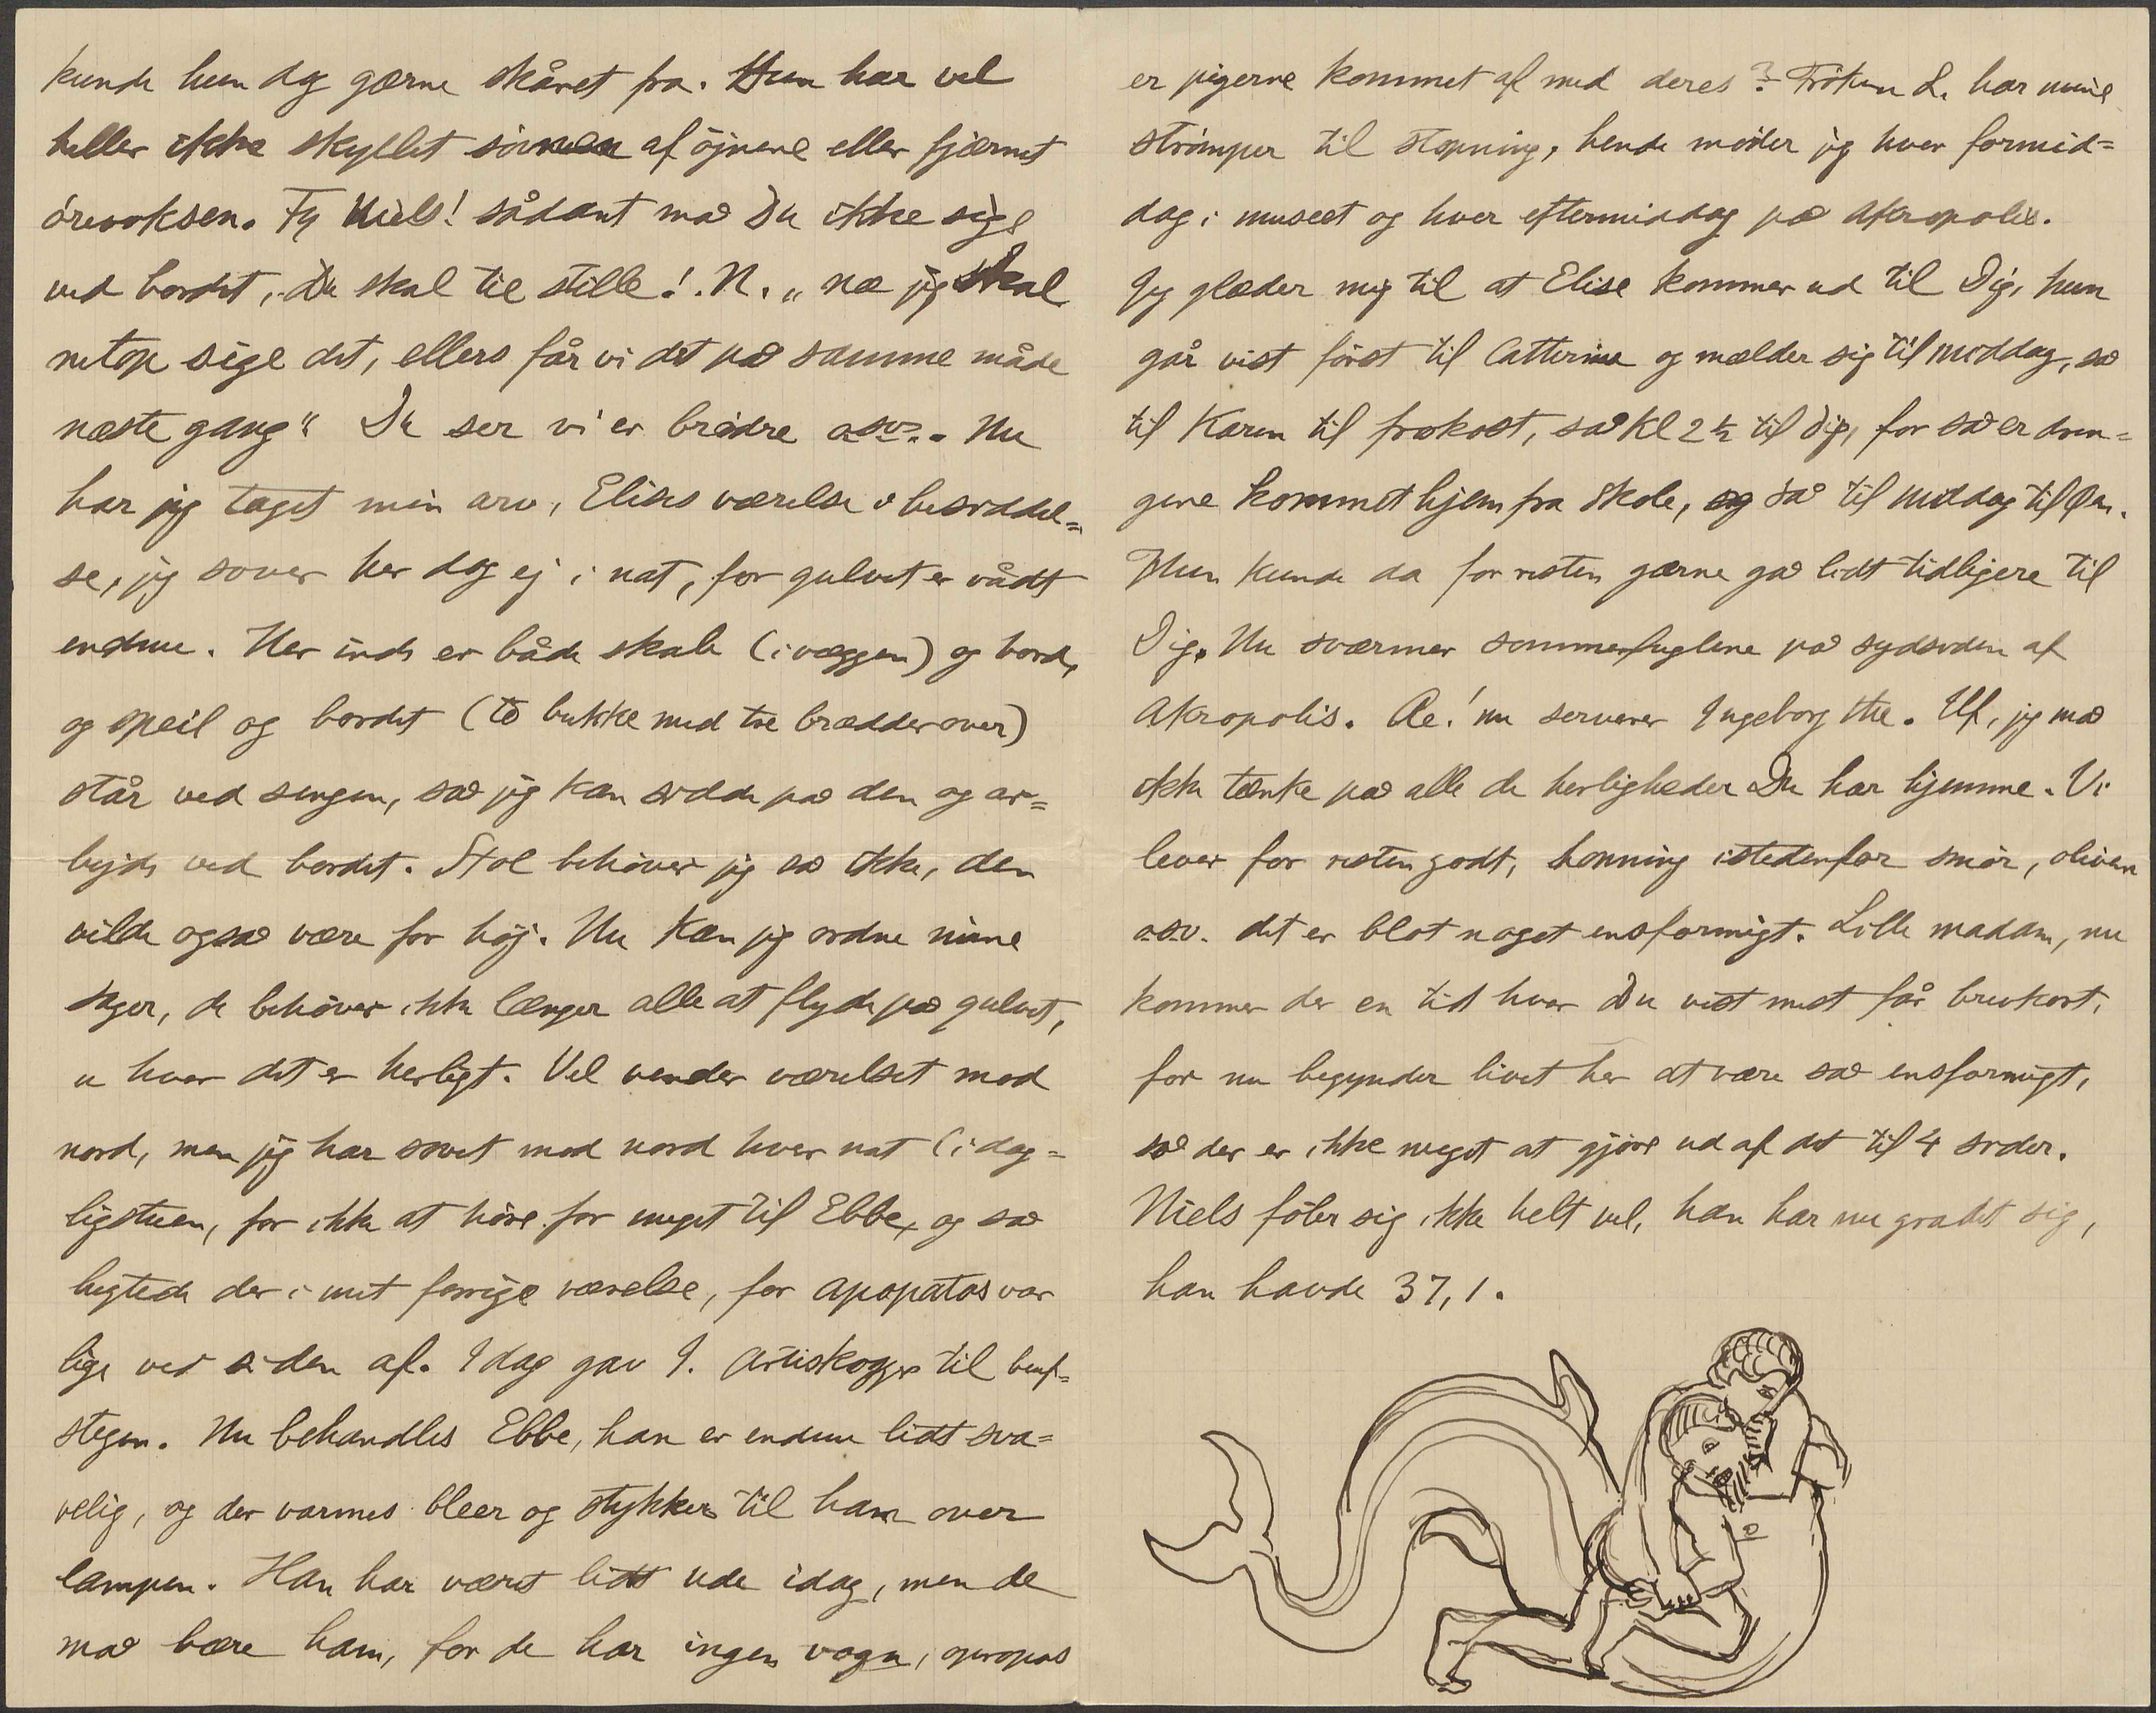 kunde hun dog gærne skåret fra. Hun har vel
heller ikke skyllet af öjnene eller fjærnet
örevoksen. Fy Niels! sådant må Du ikke sige
ved bordet, Du skal tie stille!. N. „næ jeg skal
netop sige det, ellers får vi det på samme måde
næste gang“ Du ser vi er brödre osv. Nu
har jeg taget min arv, Elises værelse i besiddel=
se, jeg sover her dog ej i nat, for gulvet er vådt
endnu. Her inde er både skab (i væggen) og bord,
og speil og bordet (to bukke med tre brædder over)
står ved sengen, så jeg kan sidde på den og ar=
bejde ved bordet. Stol behöver jeg så ikke, den
vilde også være for höj. Nu kan jeg ordne mine
sager, de behöver ikke længer alle at flyde på gulvet,
u hvor det er herligt. Vel vender værelset mod
nord, men jeg har sovet mod nord hver nat (i dag=
ligstuen, for ikke at höre for meget til Ebbe, og så
lugtede der i mit forrige værelse, for apopatos var
lige ved siden af. Idag gav I. Artiskogger til buf=
stegen. Nu behandles Ebbe, han er endnu lidt sva=
velig, og der varmes bleer og stykker til ham over
lampen. Han har været lidt ude idag, men de
må bære ham, for de har ingen vogn, apropos
er pigerne kommet af med deres? Fröken L. har mine
strömper til stopning, hende möder jeg hver formid=
dag i museet og hver eftermiddag på Akropolis.
Jeg glæder mig til at Elise kommer ud til Dig, hun
går vist först til Catterine og mælder sig til middag, så
til Karen til frokost, så kl 2½ til Dig, for så er dren=
gene kommet hjem fra skole, og så til middag til
Hun kunde da for resten gærne gå lidt tidligere til
Dig. Nu sværmer sommerfuglene på sydsiden af
Akropolis. Ae! nu serverer Ingeborg the. Uf, jeg må
ikke tænke på alle de herligheder Du har hjemme. Vi
lever for resten godt, honning istedenfor smör, oliven
osv. det er blot noget ensformigt. Lille madam, nu
kommer der en tid hvor Du vist mest får brevkort,
for nu begynder livet her at være så ensformigt,
så der er ikke meget at gjöre ud af det til 4 sider.
Niels föler sig ikke helt vel, han har nu gradet sig,
han havde 37,1.